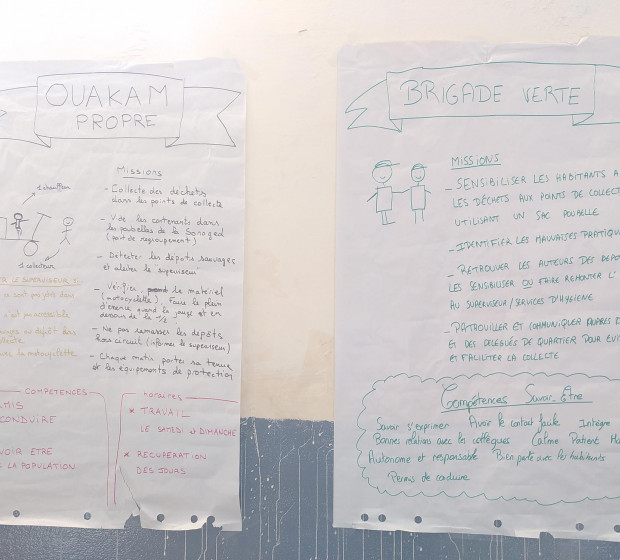 OUAKAM
PROPRE
Missions
- Collecte des déchets
dans les points de collecte
- Vide les contenants dans
les poubelles de la Sonaged
(point de regroupement)
- Détecter les dépôts sauvages
et alerter le superviseur
- Vérifier le matériel
(motocyclette). Faire le plein
d'essence quand la jauge est en
dessous de la 1/2
- Ne pas ramasser les dépôts
hors circuit (informer le superviseur)
- Chaque matin porter sa tenue
et les equipements de protection
1 chauffeur
1 collecteur
LE SUPERVISEUR ?
la motocyclette
COMPETENCES
CONDUIRE
ETRE
LA POPULATION
horaires
* TRAVAIL
LE SAMEDI & DIMANCHE
* RECUPERATION
DES JOURS
BRIGADE VERTE
MISSIONS
- SENSIBILISER LES HABITANTS A
LES DÉCHETS AUX POINTS DE COLLECT
UTILISANT UN SAC POUBELLE
- IDENTIFIER LES MAUVAISES PRATIQUE
- RETROUVER LES AUTEURS DES DEPO
LES SENSIBILISER OU FAIRE REMONTER L'
AU SUPERVISEUR / SERVICES D'HYGIENE
- PATROUILLER ET COMMUNIQUER AUPRES
ET DES DELEGUÉS DE QUARTIER POUR EVI
ET FACILITER LA COLLECTE
Compétences Savoir Être
Savoir s'exprimer Avoir le contact facile Intègre
Bonnes relations avec les collègues Calme Patient
Autonome et responsable Bien parler avec les habitants
Permis de conduire